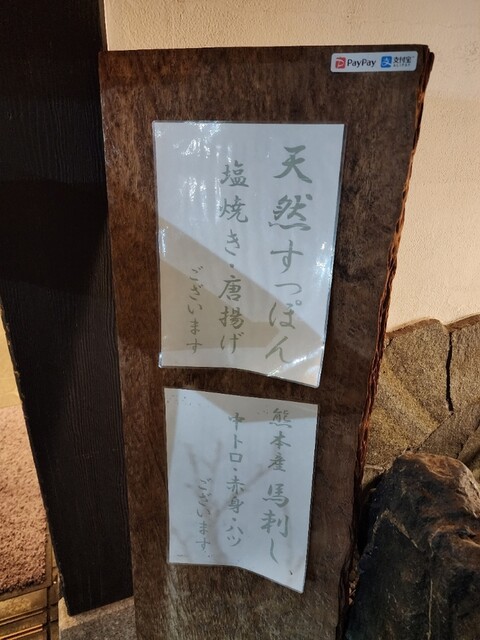 PayPay 支付宝
天然すっぽん
塩焼き・唐揚げ
ございます
熊本産 馬刺し、
中トロ・赤身・ハツ
ございます。